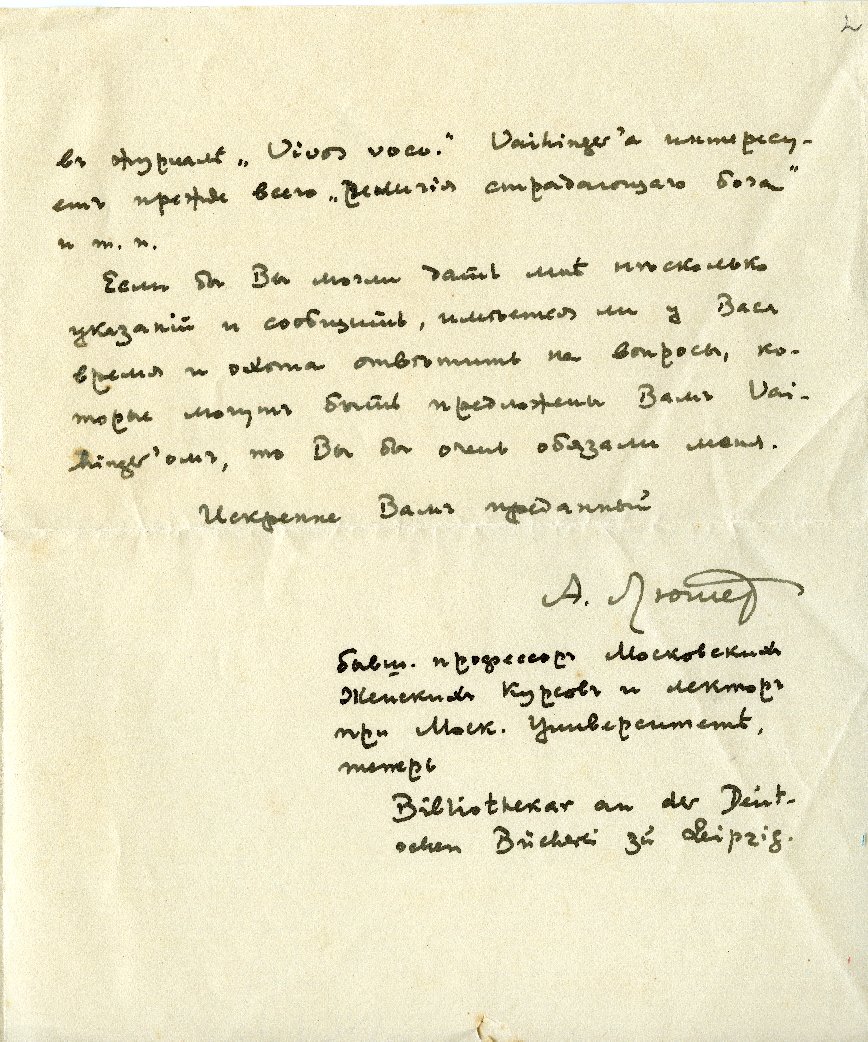 2
въ журналѣ „Vivos voco.“ Vaihinger'а интересу-
етъ прежде всего „религія страдающаго бога“
и т. п.
Если бы Вы могли дать мнѣ нѣсколько
указаній и сообщить, имѣется ли у Васъ
время и охота отвѣтить на вопросы, ко-
торые могутъ быть предложены Вамъ Vai-
hinger'омъ, то Вы бы очень обязали меня.
Искренне Вамъ преданный
А. Лютер
бывш. профессоръ Московскихъ
Женскихъ Курсовъ и лекторъ
при Моск. Университетѣ,
теперь
Bibliothekar an der Deut-
schen Bücherei zu Leipzig.